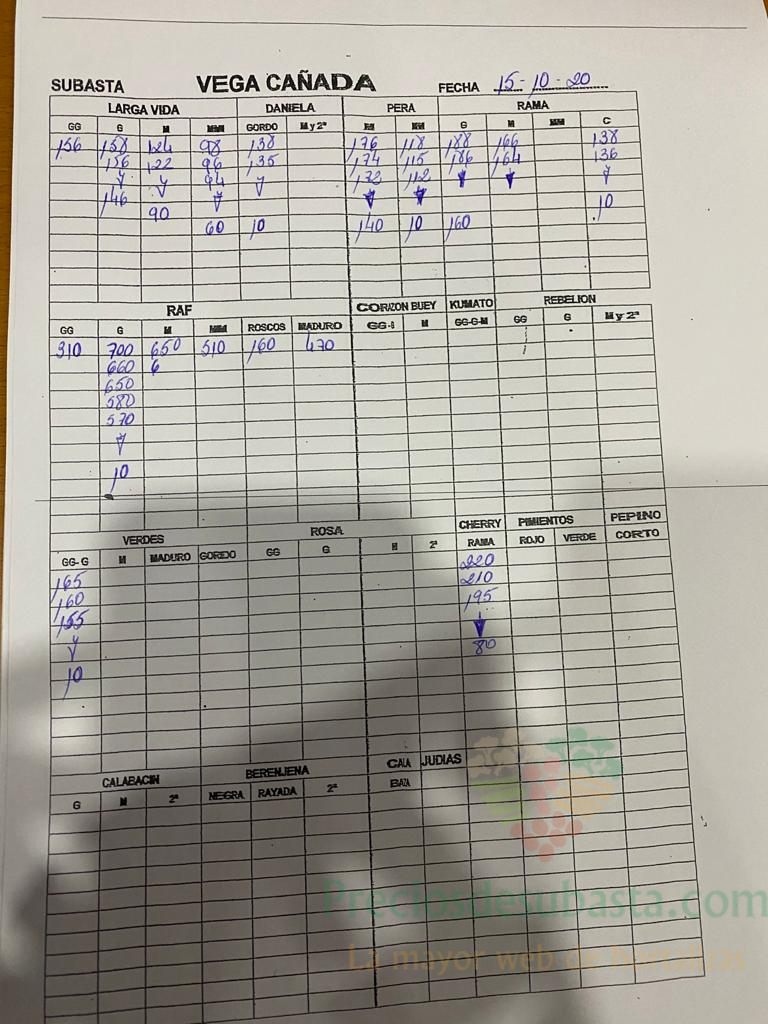 SUBASTA VEGA CAÑADA FECHA 15-10-20
LARGA VIDA DANIELA PERA RAMA
GG G M MM GORDO M y 2ª M MM G M MM C
156 158 124 98 138 176 118 188 166 138
156 122 96 135 174 115 186 164 136
94 172 112
146 10
90
60 10 140 10 160
RAF CORAZON BUEY KUMATO REBELION
GG G M MM ROSCOS MADURO GG-G M GG-G-M GG G M y 2ª
310 700 650 510 160 470
660 6
650
580
570
10
VERDES ROSA CHERRY PIMIENTOS PEPINO
GG-G M MADURO GORDO GG G M 2ª RAMA ROJO VERDE CORTO
165 220
160 210
155 195
80
10
CALABACIN BERENJENA CAÑA JUDIAS
G M 2ª NEGRA RAYADA 2ª BAJA
Preciosdesubasta.com
La mayor web de hortalizas